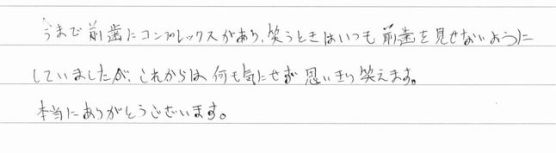 今まで前歯にコンプレックスがあり、笑うときはいつも前歯を見せないように
していましたが、これからは何も気にせず思いきり笑えます。
本当にありがとうございます。